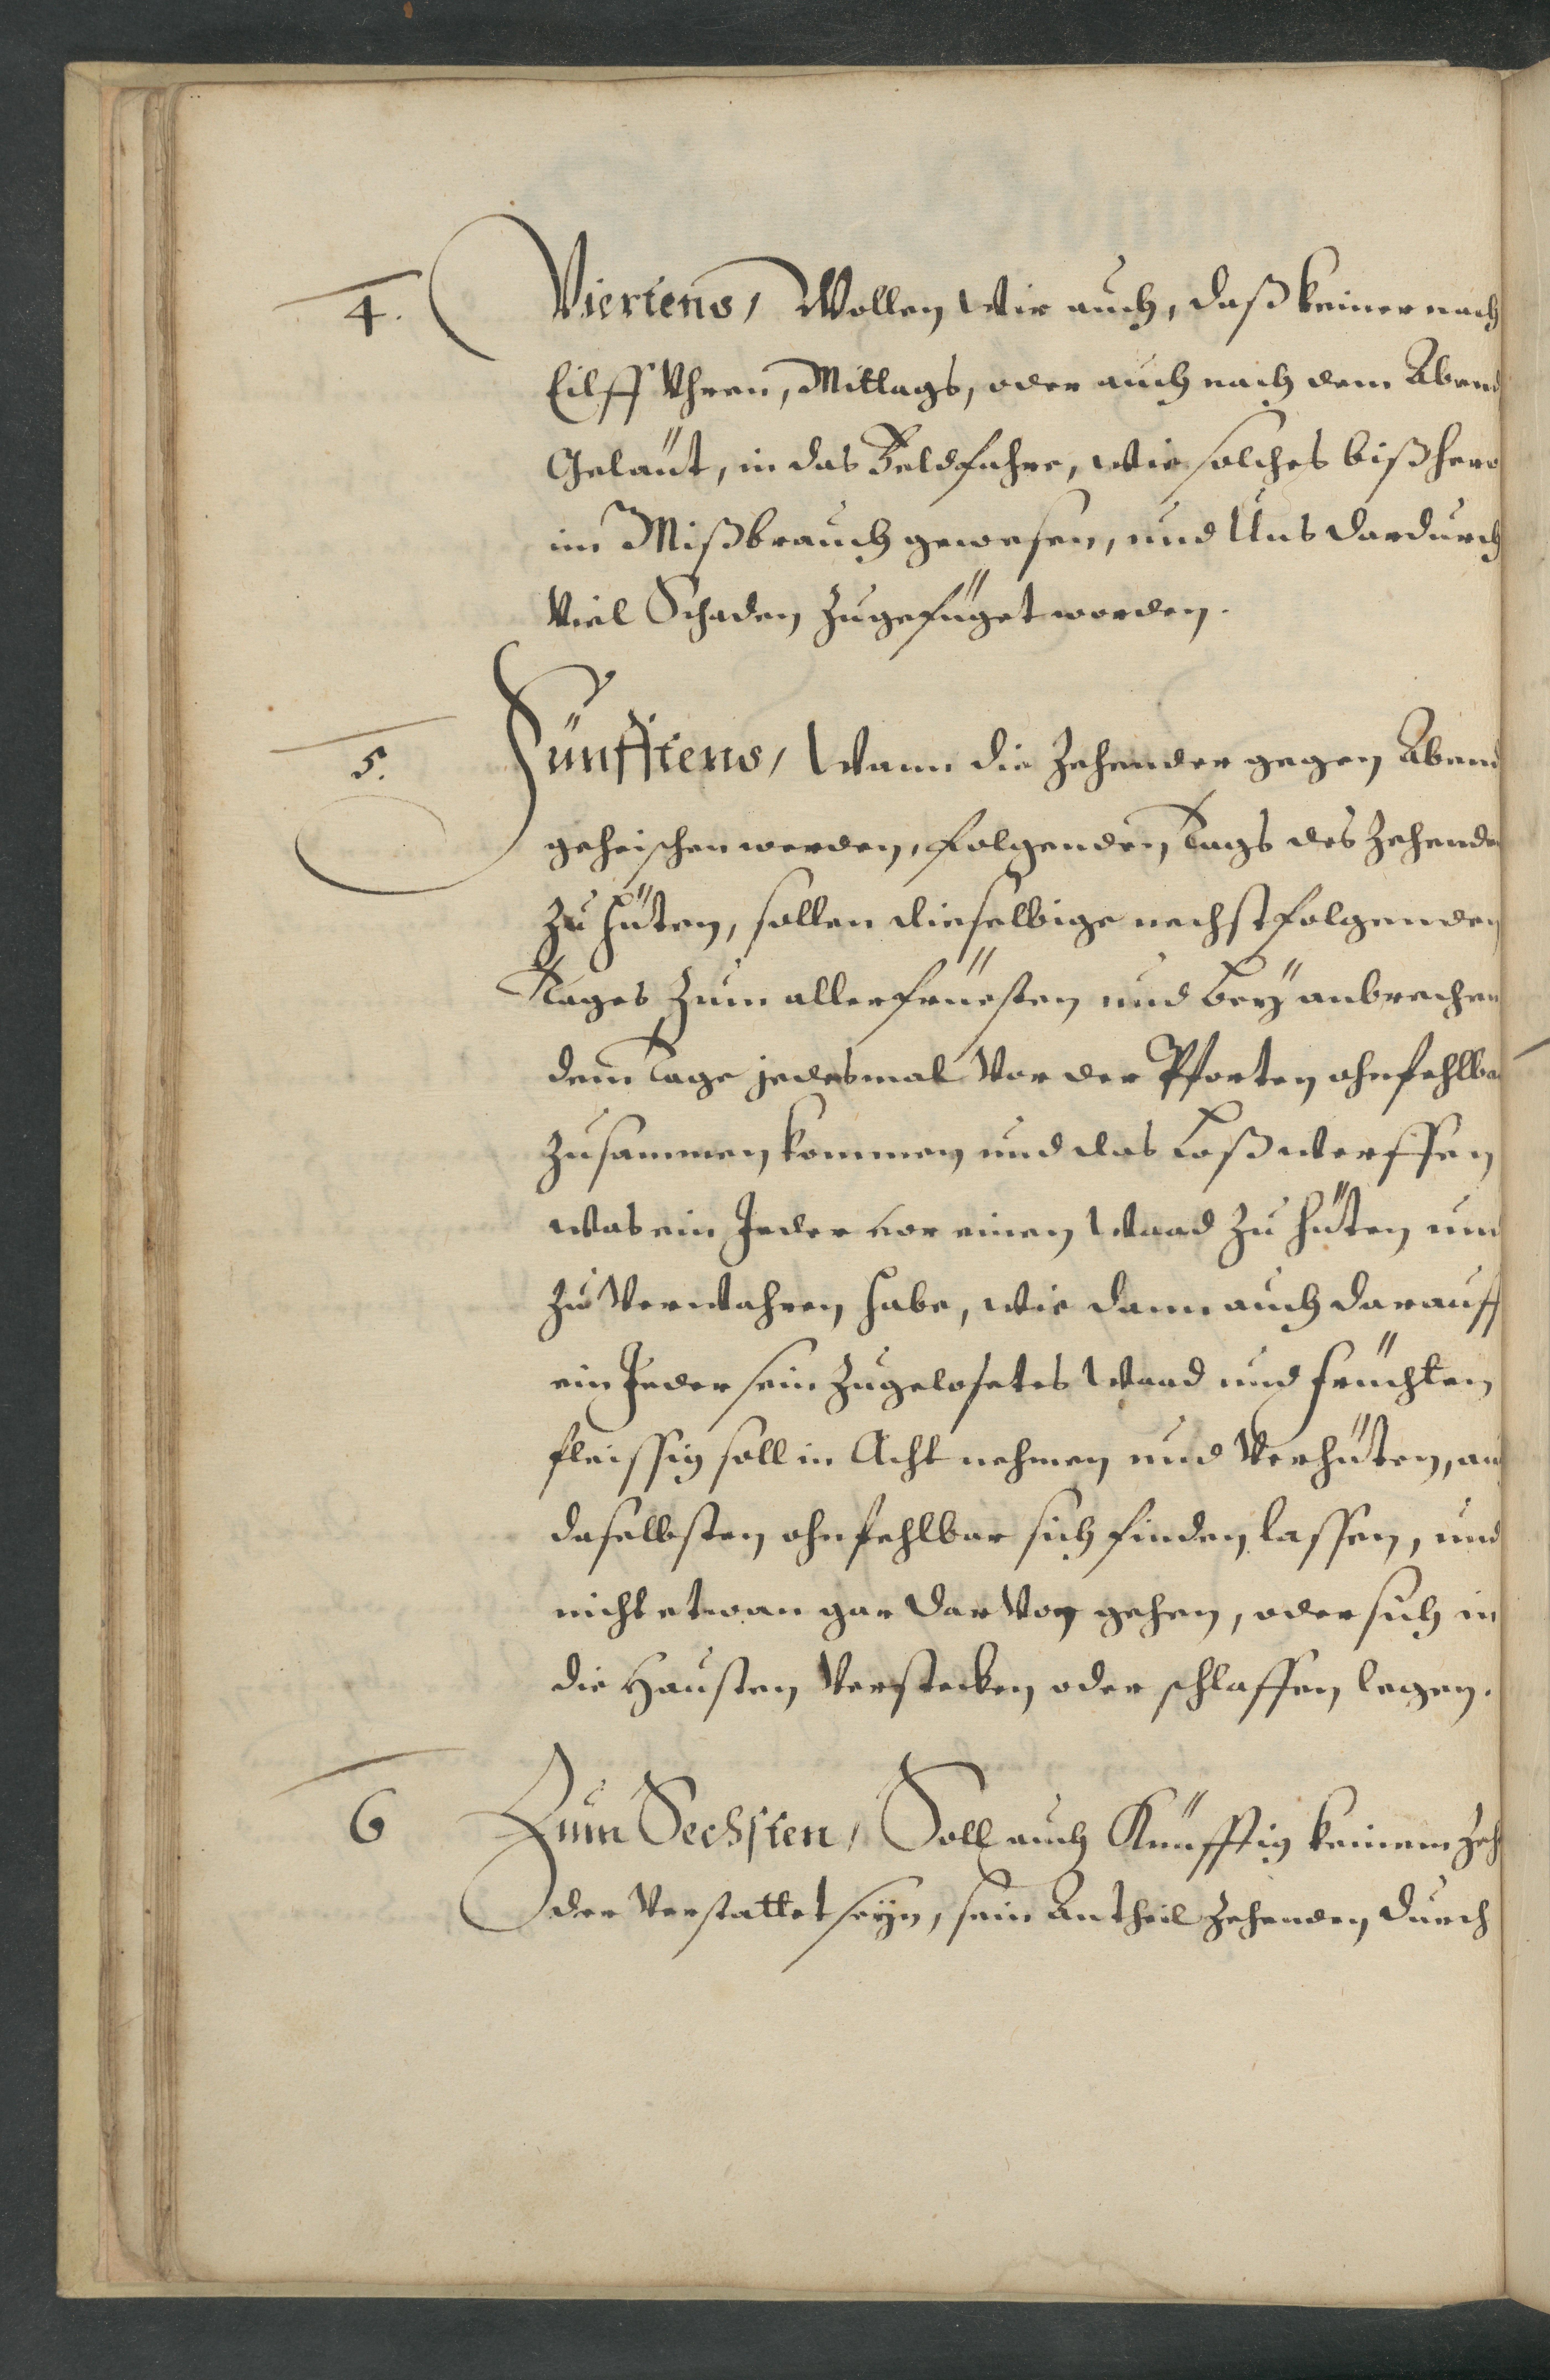 4. Viertens, Wollen Wir auch, daß keiner nach
Eilff Uhren, Mittags, oder auch nach dem Abend
Geläut, in das Feld fahre, wie solches bißhero
im Mißbrauch gewesen, und Uns dardurch
Viel Schaden zugefüget worden.
5. Fünfftens, Wann die Zehender gegen Abend
geheischen werden, folgenden Tags des Zehenden
zu hüten, sollen dieselbige nechstfolgenden
Tages zum allerfrüesten und beÿ anbrechen
dem Tage jedesmal Vor der Pforten ohnfehlbar
zusammen kommen und das Loß werffen
was ein Jeder vor einen Waad zu hüten und
zu Verwahren habe, wie dann auch darauff
ein Jeder sein zugelosetes Waad und früchten
fleissig soll in Acht nehmen und Verhüten, auch
daselbsten ohnfehlbar sich finden lassen, und
nicht etwan gar dar Von gehen, oder sich in
die Hausten Verstecken oder schlaffen legen.
6 Zum Sechsten, Soll auch Künfftig keinem Zeh
der Verstattet seÿn, sein Antheil Zehenden durch